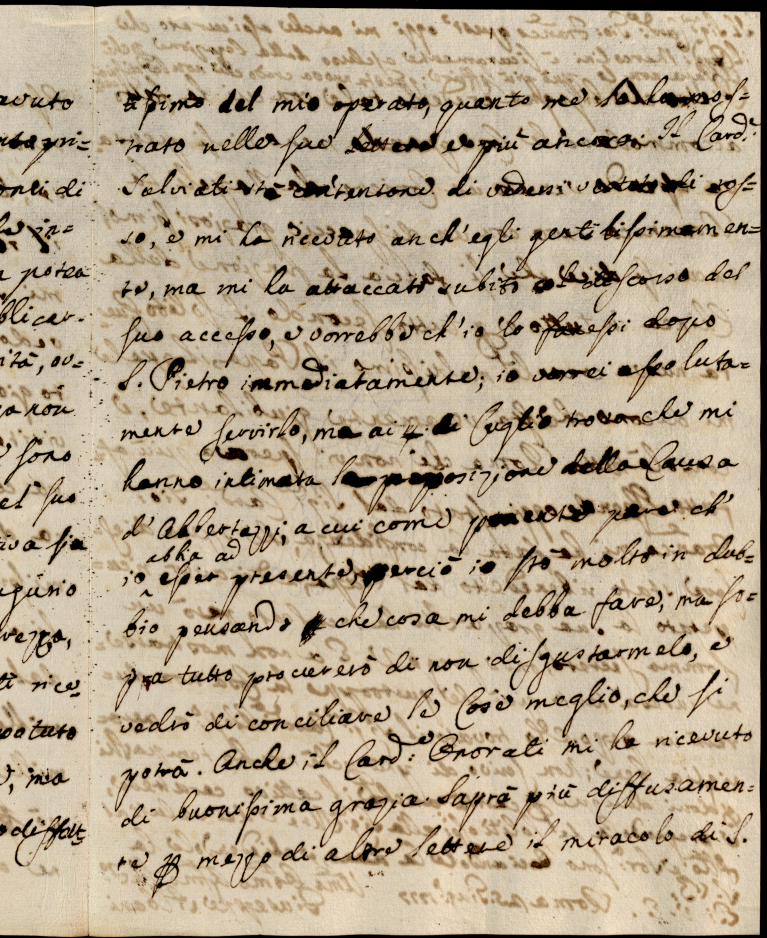 avuto
onti di
in=
potea
blicar-
ità, ov=
a non
sono
el suo
iva sia
ugurio
rezza,
rice=
potuto
, ma
diffat=
tissimo del mio operato, quanto me lo ha mos=
trato nelle sue lettere e più ancora. Il Card.e
Salviati stà contentone di vedersi vestito di ros=
so, e mi ha ricevuto anch'egli gentilissimamen=
te, ma mi ha attaccato subito il discorso del
suo accesso, e vorrebbe ch'io lo facessi dopo
S. Pietro immediatamente; io vorrei assoluta=
mente servirlo, ma ai 4 di Luglio trovo che mi
hanno intimata la proposizione della Causa
d'Albertazzi, a cui come ponente pare ch'
io abbia ad esser presente, perciò io stò molto in dub=
bio pensando che cosa mi debba fare; ma so=
pra tutto procurerò di non disgustarmelo, e
vedrò di conciliare le Cose meglio, che si
potrà. Anche il Card.e Onorati mi ha ricevuto
di buonissima grazia. Saprà più diffusamen=
te per mezzo di altre lettere il miracolo di S.